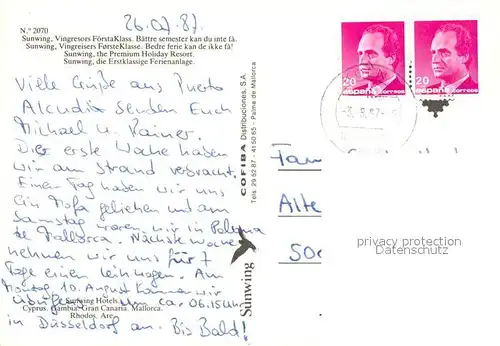 26.07.87
N.º 2070
Sunwing, Vingresors FörstaKlass. Bättre semester kan du inte få.
Sunwing, Vingreisers FørsteKlasse. Bedre ferie kan de ikke få!
Sunwing, the Premium Holiday Resort.
Sunwing, die Erstklassige Ferienanlage.
Viele Grüße aus Puerto
Alcudia senden Euch
Michael u. Rainer.
Die erste Woche haben
wir am Strand verbracht.
Einen Tag haben wir uns
ein Mofa geliehen und am
Samstag waren wir in Palma
de Mallorca. Nächste Woche
nehmen wir uns für 7
Tage einen Leihwagen. Am
Montag 10. August kommen wir
übrigens um ca. 06.15 Uhr
in Düsseldorf an. Bis Bald!
Sunwing Hotels.
Cyprus. Gambia. Gran Canaria. Mallorca.
Rhodos. Are.
COFIBA Distribuciones, S.A.
Tels. 29 52 87 - 41 50 65 - Palma de Mallorca
Sunwing
20
españa correos
20
españa correos
Fam
Alte
500
privacy protection
ansichtskartenversand.com